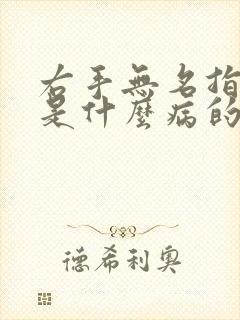 右手無名指
是什麼病的
德希利奧